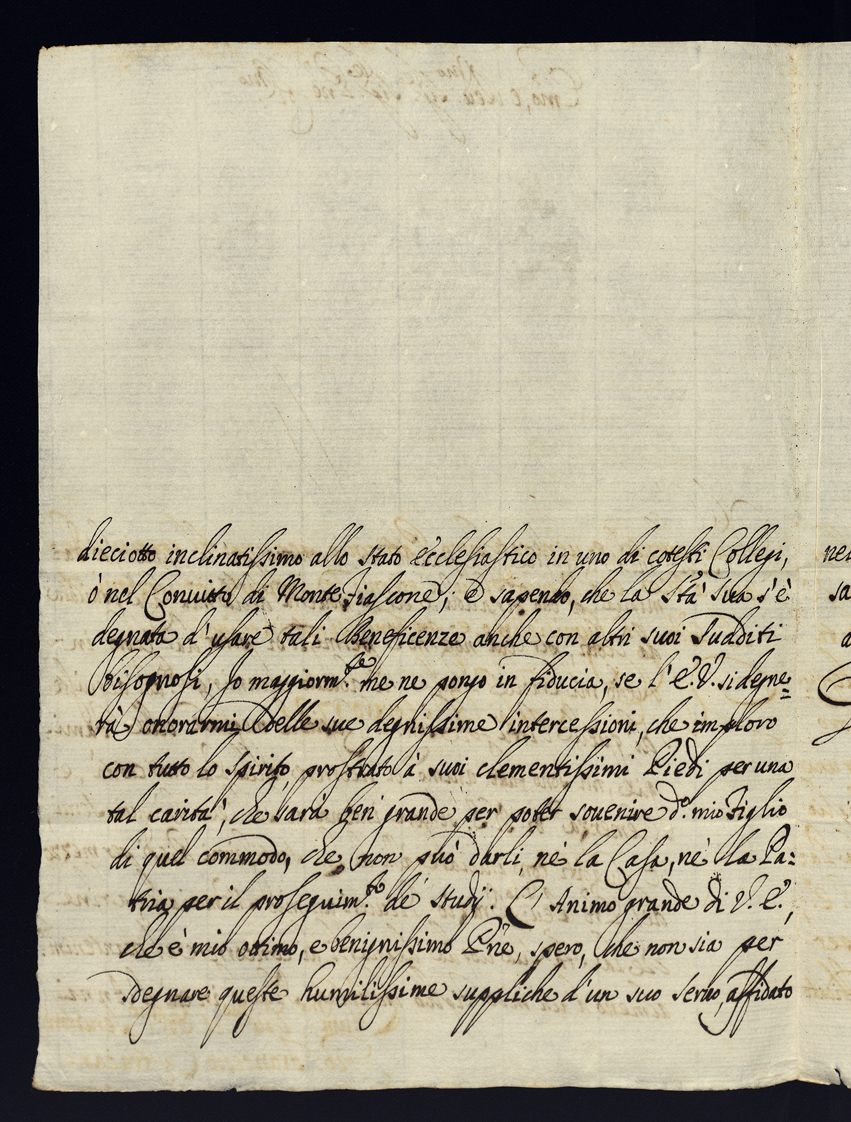 dieciotto inclinatissimo allo stato ecclesiastico in uno di cotesti Collegi,
ò nel Convitto di Montefiascone; e sapendo, che la Stà Sua s'è
degnata d'usare tali Beneficenze anche con altri suoi Sudditi
bisognosi, Io maggiorm.te me ne pongo in fiducia, se l'E.V. si degne=
rà onorarmi delle sue degnissime intercessioni, che imploro
con tutto lo spirito, prostrato à suoi clementissimi Piedi per una
tal carità, che sarà ben grande per poter sovenire d.o mio Figlio
di quel commodo, che non può darli, nè la Casa, nè la Pa=
tria per il proseguim.to de' studij. L'Animo grande di V.E.,
che è mio ottimo, e benignissimo Prñe, spero, che non sia per
sdegnare queste humilissime suppliche d'un suo servo, affidato